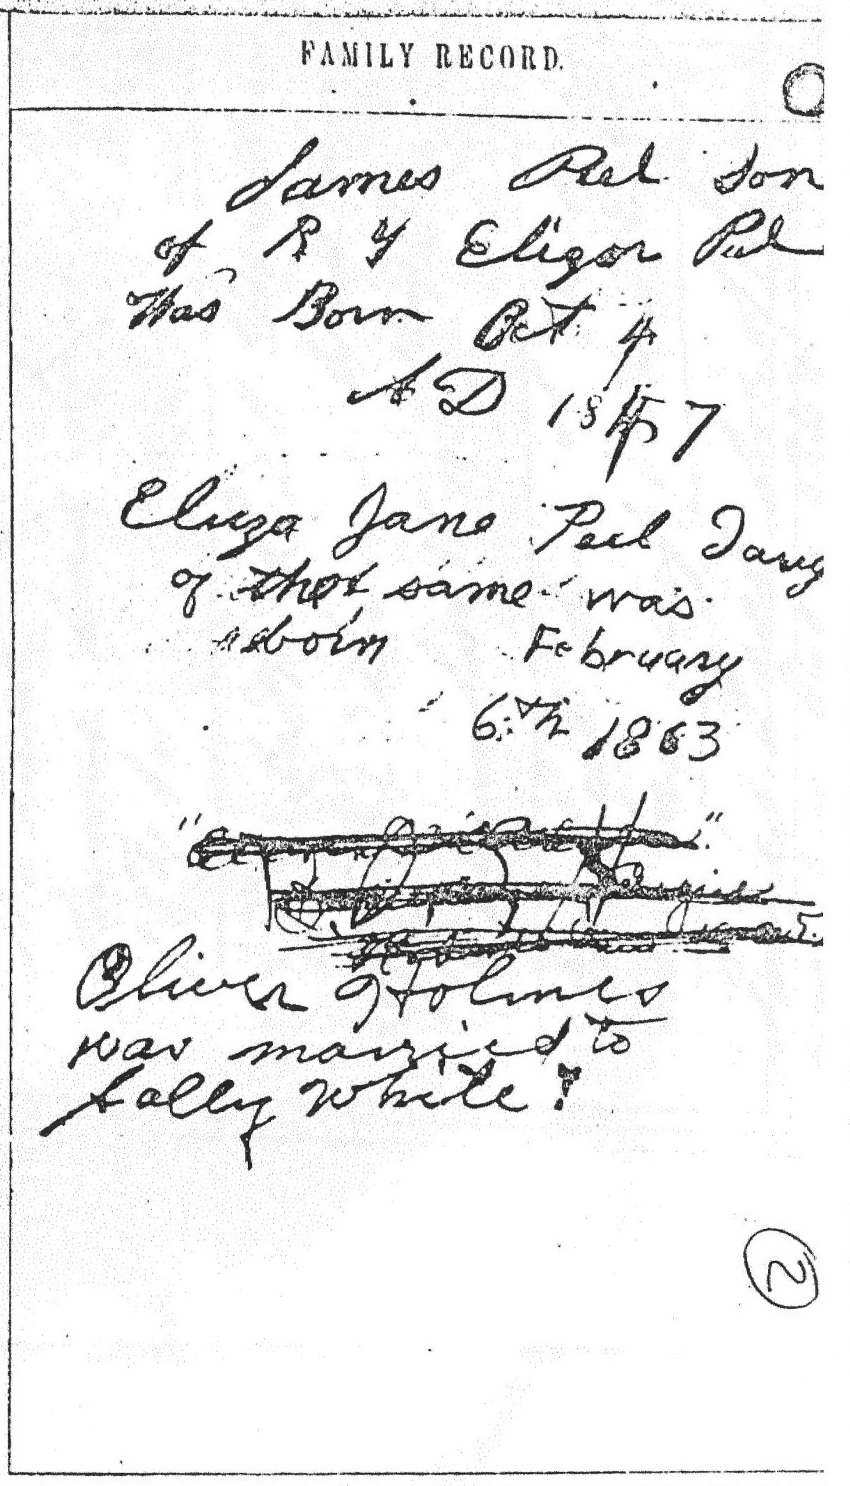 FAMILY RECORD.
James Peel Son
of R Y Elizor Peel
Was Born Oct 4
AD 1857
Eliza Jane Peel Daug
of the same was
born February
6th 1863
Oliver Holmes
was married to
Sally White!
2